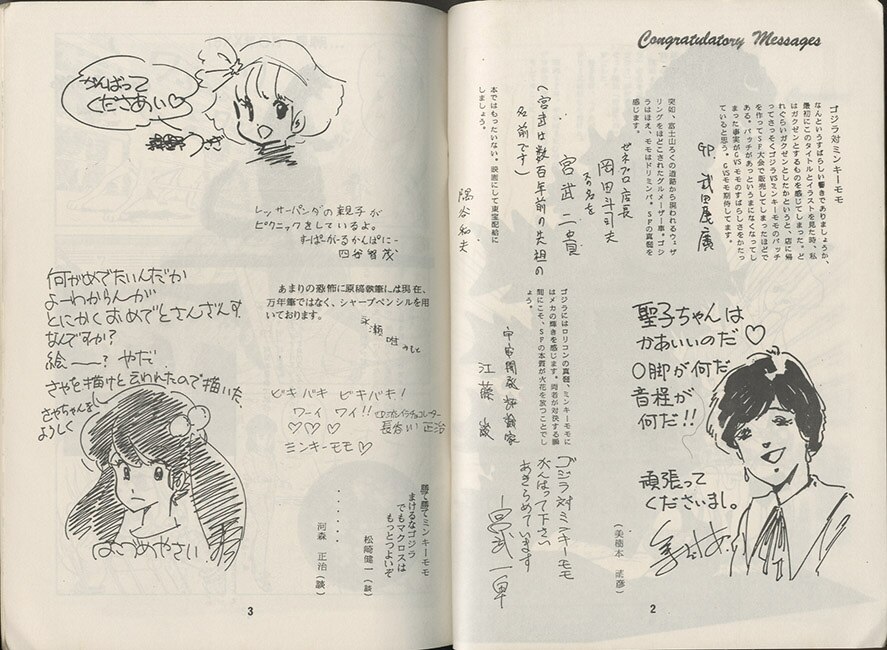 Congratulatory Messages
ゴジラ対ミンキーモモ
なんというすばらしい響きでありましょうか、
最初にこのタイトルとイラストを見た時、私
はガクゼンとするものを感じてしまった。ど
れぐらいガクゼンとしたかというと、店に帰
ってさっそくゴジラVSミンキーモモのバッチ
を作ってSF大会で販売してしまったほどで
ある。バッチがあっというまになくなってし
まった事実がGVSモモのすばらしさをかたっ
ていると思う。GVSモモ期待してます。
武田康廣
突如、富士山ろくの道路から現われるウェザ
リングをほどこされたグルメーザー車。ゴジ
ラはほえ、モモはドリミンパ。SFの真髄を
感じます。
ゼネプロ店長
岡田斗司夫
又の名を
宮武二貴
(宮武は数百年前の先祖の
名前です)
本ではもったいない。映画にして東宝配給に
しましょう。
隅谷和夫
ゴジラにはロリコンの真髄、ミンキーモモに
はメカの輝きを感じます。両者が対決する瞬
間にこそ、SFの本質が火花を放つことでし
ょう。
宇宙開発評論家
江藤 巌
ゴジラ対ミンキーモモ
がんばって下さい
あきらめています
宮武一貴
聖子ちゃんは
かあいいのだ♡
O脚が何だ
音程が
何だ!!
頑張って
くださいまし。
(美樹本 晴彦)
2
がんばって
くださあい♡
レッサーパンダの親子が
ピクニックをしているよ。
すーぱーがーるかんぱにー
四谷智茂
何がめでたいんだか
よーわからんが
とにかくおめでとさんざんす
なんですか?
絵――? やだ
さやを描けと言われたので描いた。
さやちゃんを
よろしく
はつめやさい
あまりの恐怖に原稿執筆には現在、
万年筆ではなく、シャープペンシルを用
いております。
永瀬 唯
ビキバキ ビキバキ!
ワーイ ワイ!!
♡♡♡
長谷川 正治
ミンキーモモ♡
勝て勝てミンキーモモ
まけるなゴジラ
でもマクロスは
もっとつよいぞ
松崎健一(談)
・・・・・・
河森 正治(談)
3